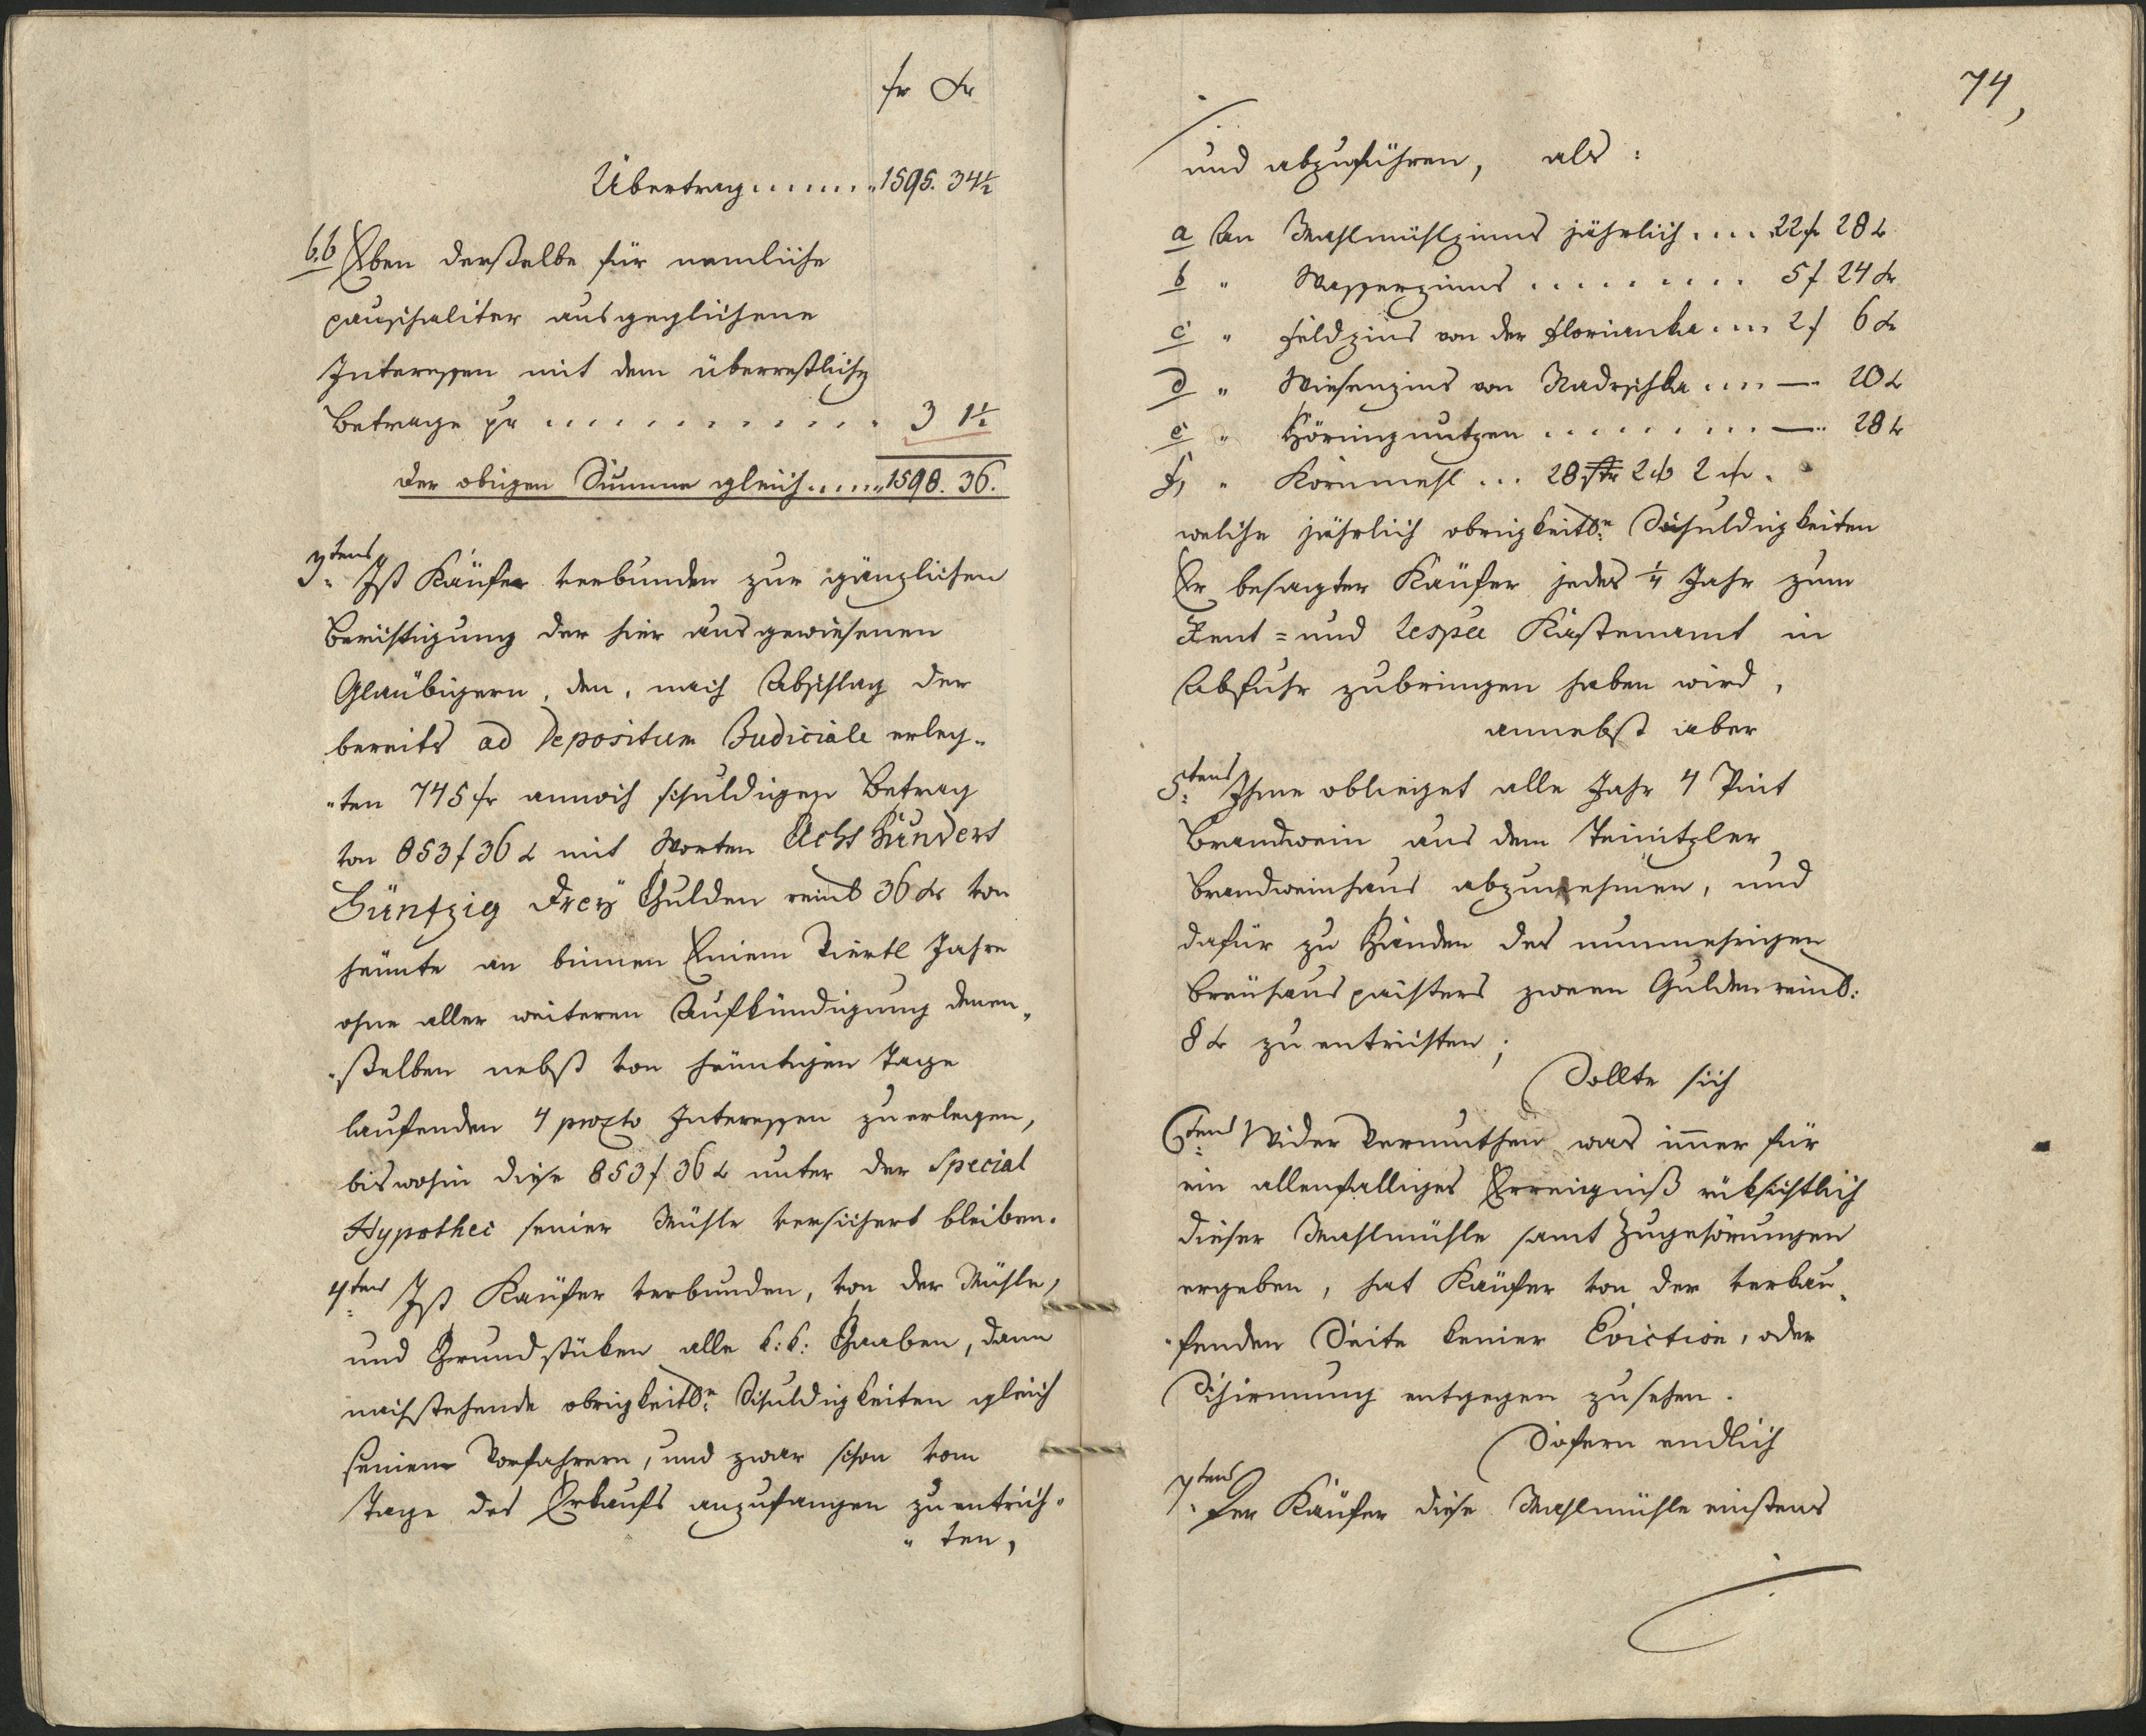 fr xr
Übertrag........ 1595. 34½
b.b Eben derselbe für nemliche
pauschaliter ausgeglichene
Interessen mit dem überrestlichen
Betrage pr ............. 3 1½
der obigen Summe gleich...... 1598. 36.
3tens Ist Käufer verbunden zur gänzlichen
Berichtigung der hier ausgewiesenen
Glaübigern, den, nach Abschlag der
bereits ad Depositum Judiciale erleg-
-ten 745 fr annoch schuldigen Betrag
von 853 f 36 x mit Worten Acht Hundert
Fünfzig Drey Gulden reinl 36 xr von
heünte an binnen Einem Viertl Jahre
ohne aller weiteren Aufkündigung denen-
-selben nebst von heüntigen Tage
laufenden 4 procto Interessen zu erlegen,
bis wohin diese 853 f 36 x unter der Special
Hypothec seiner Mühle versichert bleiben.
4tens Ist Käufer verbunden, von der Mühle,
und Grundstüken alle k: k: Gaaben, dann
nachstehende obrigkeitln: Schuldigkeiten gleich
seinem Vorfahrern, und zwar schon vom
Tage des Erkaufs anzufangen zu entrich-
" ten,
74,
und abzuführen, als:
a An Mahlmühlzinns jährlich .... 22 fr 28 x
b " Wasserzinns ......... 5 f 24 xr
c " Feldzins von der Florianka .... 2 f 6 xr
d " Wiesenzins von Nadrschka .... — 20 x
e " Hörungnutzen ......... — 28 x
f, " Kornmehl ... 28 Str 2
welche jährlich obrigkeitln: Schuldigkeiten
Er besagter Käufer jedes ¼ Jahr zum
Rent- und respee Kastenamt in
Abfuhr zubringen haben wird,
annebst aber
5tens Ihme oblieget alle Jahr 4 Pint
Brandwein aus dem Teinitzler
Brandweinhaus abzunehmen, und
dafür zu Handen des nunmehrigen
Breuhauspachters zween Gulden reinl:
8 x zu entrichten;
Sollte sich
6tens Wider Vermuthen was imer für
ein allenfalliges Erreigniß rüksichtlich
dieser Mahlmühle samt Zugehörungen
ergeben, hat Käufer von der verkau-
-fenden Seite keiner Eviction, oder
Schirmung entgegen zu sehen.
Sofern endlich
7tens Der Käufer diese Mahlmühle einstens